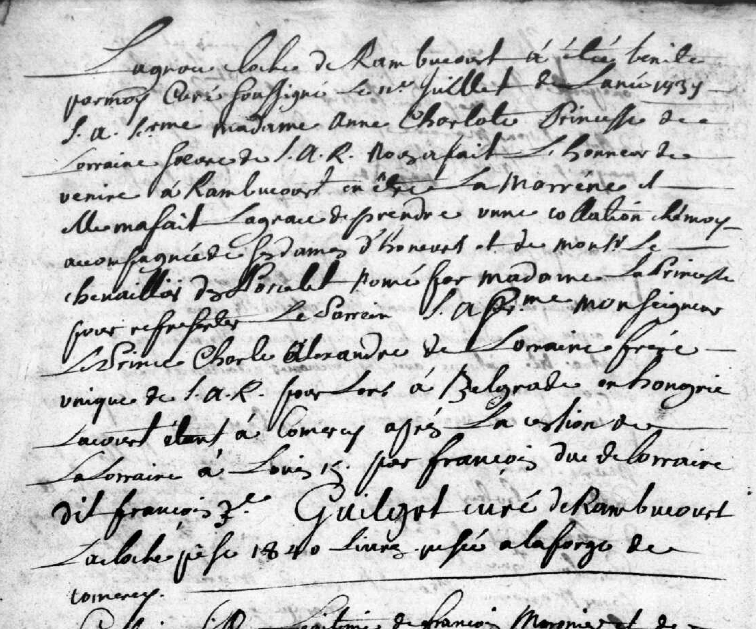 La grose cloche de Rambucourt a étée benite
par moy Curé soussigné le 11e Juillet de Lanée 1737
S. A. S.rme madame Anne Charlote Princesse de
Lorraine soeure de S. A. R. nous a fait L'honneur de
venire a Rambucourt en être La Marréne et
elle ma fait La grace de prendre unne collation ché moy
accompagnée de ses dames d'honeurs et de monsr Le
chevaillier de nomé par madame La Princesse
pour representer Le Parrain S. A. Sr.me monseigneur
Le Prince Charle Alexandre de Lorraine frére
unique de S. A. R. pour Lors a Belgrade en hongrie
La court étant à Comercy aprés La cestion de
La Lorraine à Louis 15. par françois duc de Lorraine
dit françois 3.e Guilgot curé de Rambucourt
La cloche pése 1840 Livres pesée a la forge de
comercy.
Légitime de françois et de